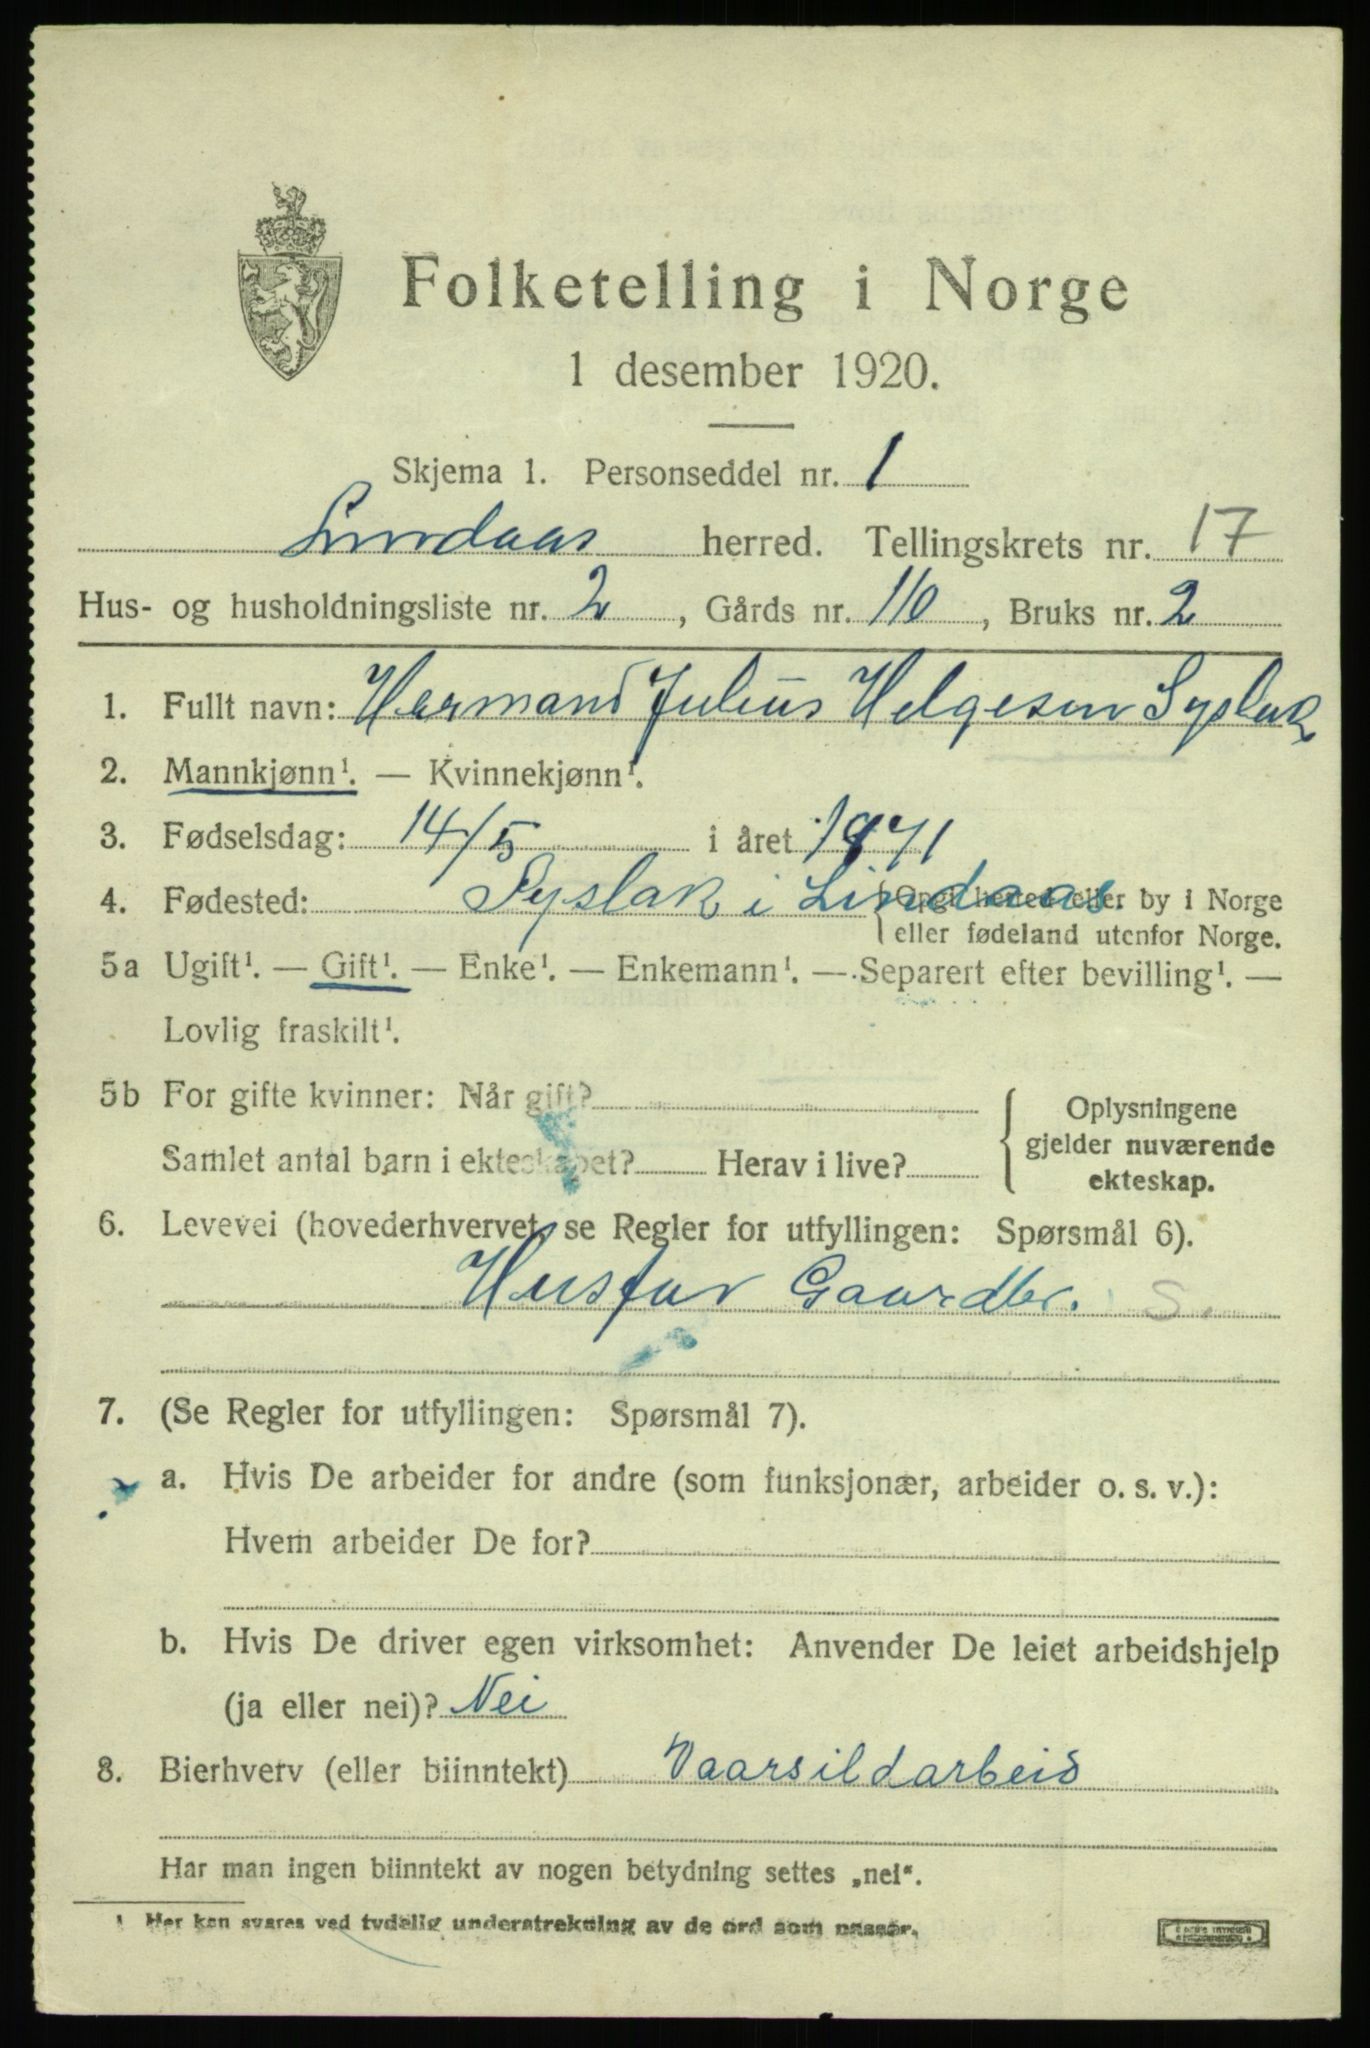 Folketelling i Norge
1 desember 1920.
Skjema 1. Personseddel nr. 1
Lindaas herred. Tellingskrets nr. 17
Hus- og husholdningsliste nr. 2, Gårds nr. 116, Bruks nr. 2
1. Fullt navn: Hermand Julius Helgesen Syslak
2. Mannkjønn¹. — Kvinnekjønn¹.
3. Fødselsdag: 14/5 i året 1871
4. Fødested: Syslak i Lindaas. {Opgi herred eller by i Norge
eller fødeland utenfor Norge.
5a Ugift¹. — Gift¹. — Enke¹. — Enkemann¹. — Separert efter bevilling¹. —
Lovlig fraskilt¹.
5b For gifte kvinner: Når gift?
Samlet antal barn i ekteskapet? Herav i live?
{Oplysningene
gjelder nuværende
ekteskap.
6. Levevei (hovederhvervet, se Regler for utfyllingen: Spørsmål 6).
Husfar Gaardbr. S.
7. (Se Regler for utfyllingen: Spørsmål 7).
a. Hvis De arbeider for andre (som funksjonær, arbeider o. s. v.):
Hvem arbeider De for?
b. Hvis De driver egen virksomhet: Anvender De leiet arbeidshjelp
(ja eller nei)? Nei
8. Bierhverv (eller biinntekt) Vaarsildarbeid
Har man ingen biinntekt av nogen betydning settes „nei“.
1 Her kan svares ved tydelig understrekning av de ord som passer.